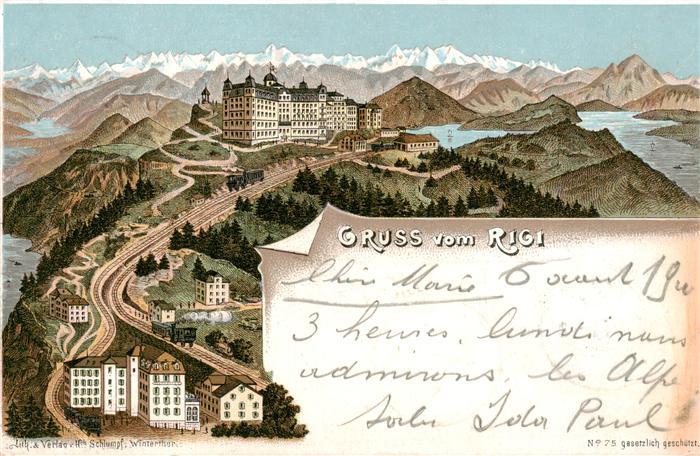 GRUSS vom RIGI
Chère Marie 6 aout 19
3 heures, lundi nous
admirons, les Alpe
Ida Paul
Lith. & Verlag v. Hch. Schlumpf, Winterthur.
No 75 gesetzlich geschützt.